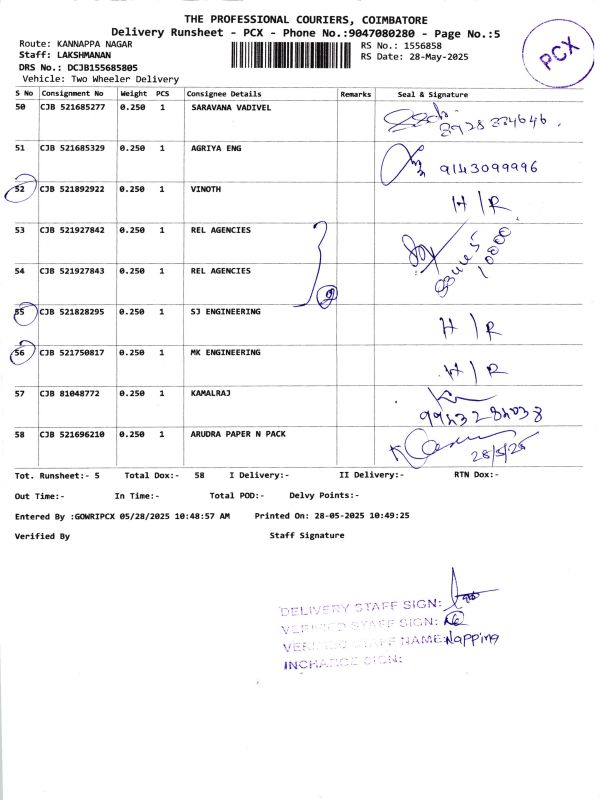 THE PROFESSIONAL COURIERS, COIMBATORE
Delivery Runsheet - PCX - Phone No.:9047080280 - Page No.:5
Route: KANNAPPA NAGAR
RS No.: 1556858
Staff: LAKSHMANAN
RS Date: 28-May-2025
DRS No.: DCJB155685805
Vehicle: Two Wheeler Delivery
PCX
S No Consignment No Weight PCS Consignee Details Remarks Seal & Signature
50 CJB 521685277 0.250 1 SARAVANA VADIVEL
51 CJB 521685329 0.250 1 AGRIYA ENG 9143099996
52 CJB 521892922 0.250 1 VINOTH H/R
53 CJB 521927842 0.250 1 REL AGENCIES
54 CJB 521927843 0.250 1 REL AGENCIES 10000
2
55 CJB 521828295 0.250 1 SJ ENGINEERING H/R
56 CJB 521750817 0.250 1 MK ENGINEERING H/R
57 CJB 81048772 0.250 1 KAMALRAJ
58 CJB 521696210 0.250 1 ARUDRA PAPER N PACK 28/5/25
Tot. Runsheet:- 5 Total Dox:- 58 I Delivery:- II Delivery:- RTN Dox:-
Out Time:- In Time:- Total POD:- Delvy Points:-
Entered By :GOWRIPCX 05/28/2025 10:48:57 AM Printed On: 28-05-2025 10:49:25
Verified By Staff Signature
DELIVERY STAFF SIGN:
VERIFIED STAFF SIGN:
VERIFIED STAFF NAME: Napping
INCHARGE SIGN: